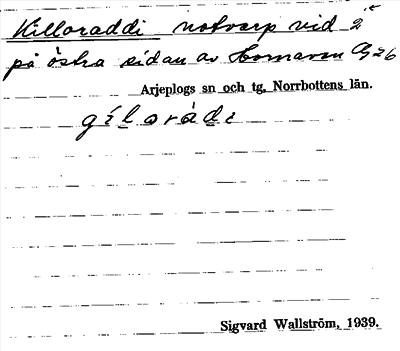 Killoraddi notvarp vid 2
på östra sidan av Hornavan
Arjeplogs sn och tg, Norrbottens län.
gilorádi
Sigvard Wallström, 1939.